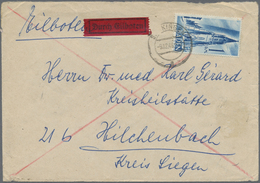 Eilboten
Durch Eilboten
Herrn Dr. med. Karl Gérard
Kreisheilstätte
21b Hilchenbach
Kreis Siegen